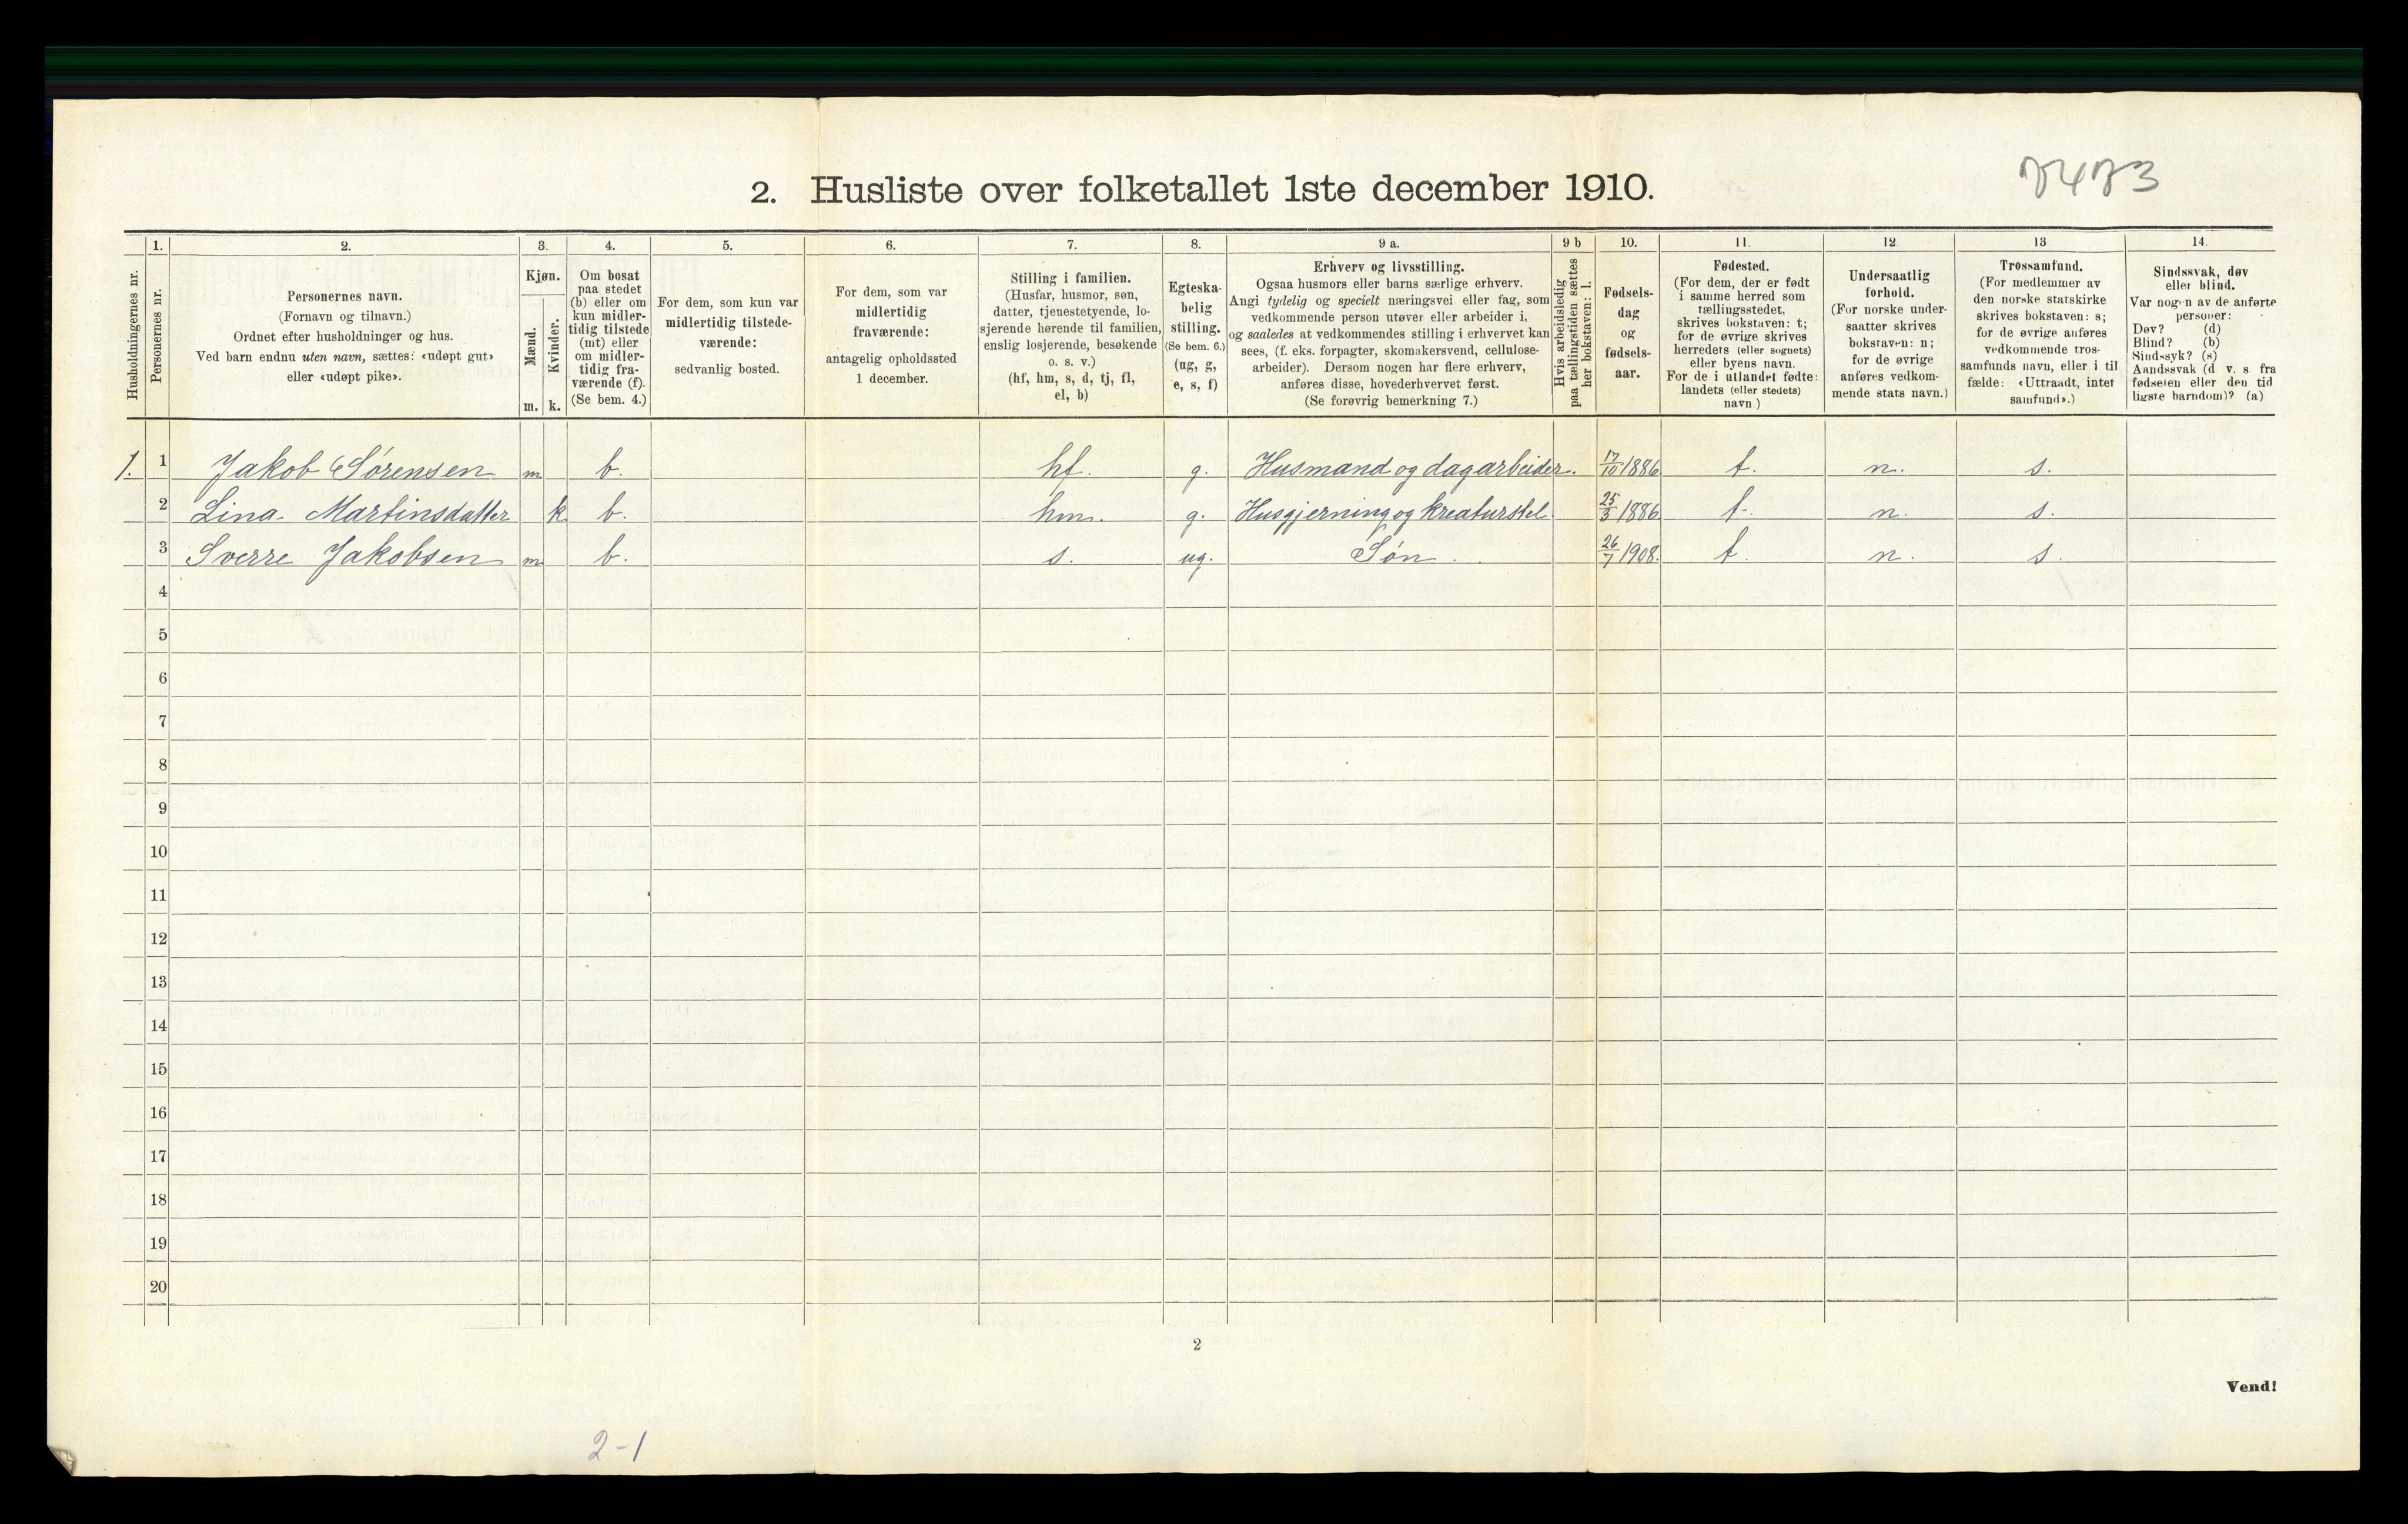 7473
2. Husliste over folketallet 1ste december 1910.
Husholdningernes nr.
1.
Personernes nr.
2.
Personernes navn.
(Fornavn og tilnavn.)
Ordnet efter husholdninger og hus.
Ved barn endnu uten navn, sættes: «udøpt gut»
eller «udøpt pike».
3.
Kjøn.
Mænd.
Kvinder.
m. k.
4.
Om bosat
paa stedet
(b) eller om
kun midler-
tidig tilstede
(mt) eller
om midler-
tidig fra-
værende (f).
(Se bem. 4.)
5.
For dem, som kun var
midlertidig tilstede-
værende:
sedvanlig bosted.
6.
For dem, som var
midlertidig
fraværende:
antagelig opholdssted
1 december.
7.
Stilling i familien.
(Husfar, husmor, søn,
datter, tjenestetyende, lo-
sjerende hørende til familien,
enslig losjerende, besøkende
o. s. v.)
(hf, hm, s, d, tj, fl,
el, b)
8.
Egteska-
belig
stilling.
(Se bem. 6.)
(ug, g,
e, s, f)
9 a.
Erhverv og livsstilling.
Ogsaa husmors eller barns særlige erhverv.
Angi tydelig og specielt næringsvei eller fag, som
vedkommende person utøver eller arbeider i,
og saaledes at vedkommendes stilling i erhvervet kan
sees, (f. eks. forpagter, skomakersvend, cellulose-
arbeider). Dersom nogen har flere erhverv,
anføres disse, hovederhvervet først.
(Se forøvrig bemerkning 7.)
9 b
Hvis arbeidsledig
paa tællingstiden sættes
her bokstaven: l.
10.
Fødsels-
dag
og
fødsels-
aar.
11.
Fødested.
(For dem, der er født
i samme herred som
tællingsstedet,
skrives bokstaven: t;
for de øvrige skrives
herredets (eller sognets)
eller byens navn.
For de i utlandet fødte:
landets (eller stedets)
navn)
12.
Undersaatlig
forhold.
(For norske under-
saatter skrives
bokstaven: n;
for de øvrige
anføres vedkom-
mende stats navn.)
13
Trossamfund.
(For medlemmer av
den norske statskirke
skrives bokstaven: s;
for de øvrige anføres
vedkommende tros-
samfunds navn, eller i til
fælde: «Uttraadt, intet
samfund».)
14.
Sindssvak, døv
eller blind.
Var nogen av de anførte
personer:
Døv? (d)
Blind? (b)
Sindssyk? (s)
Aandssvak (d v. s fra
fødselen eller den tid
ligste barndom)? (a)
1. 1 Jakob Sørensen m b. hf. g. Husmand og dagarbeider. 17/10 1886 t. n. s.
2 Lina Martinsdatter k b. hm. g. Husgjerning og kreaturstel 25/3 1886 t. n. s.
3 Sverre Jakobsen m b. s. ug. Søn 26/7 1908. t. n. s.
4
5
6
7
8
9
10
11
12
13
14
15
16
17
18
19
20
2
Vend!
2-1